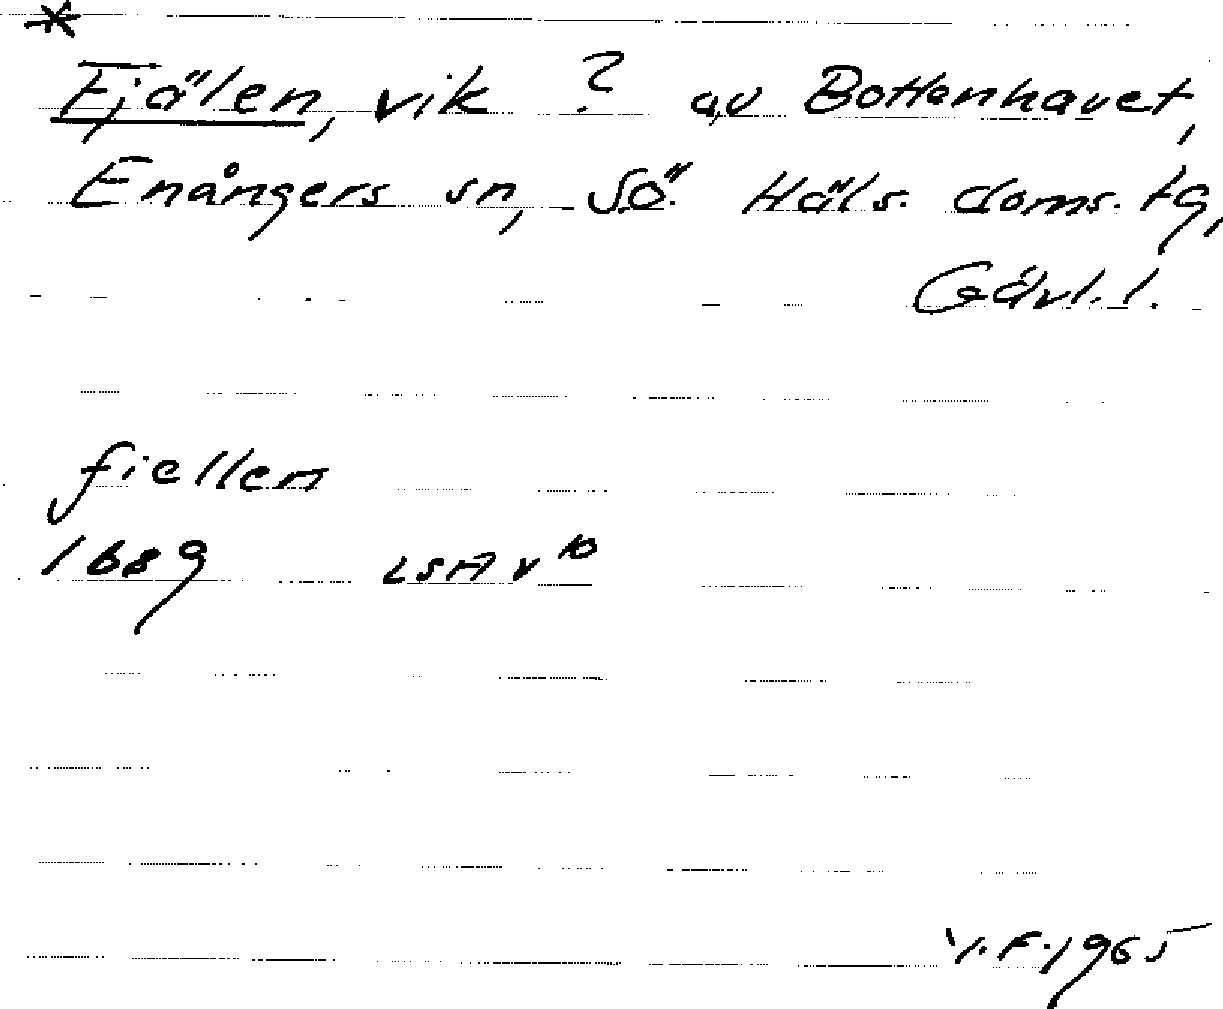 *
Fjälen, vik ? av Bottenhavet,
Enångers sn, Sö. Häls. doms. tg,
Gävl. l.
fiellen
1689 LSA v 10
Y.F. 1965